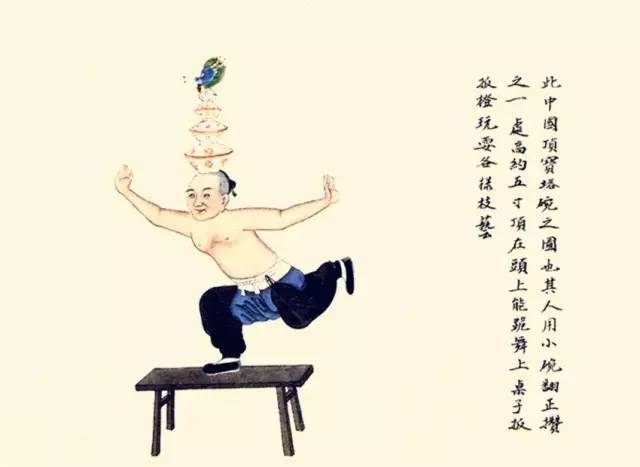 此中國頂寶塔碗之圖也其人用小碗翻正攢
之一處高約五寸頂在頭上能跪舞上桌子扳
扳橙玩耍各樣枝藝